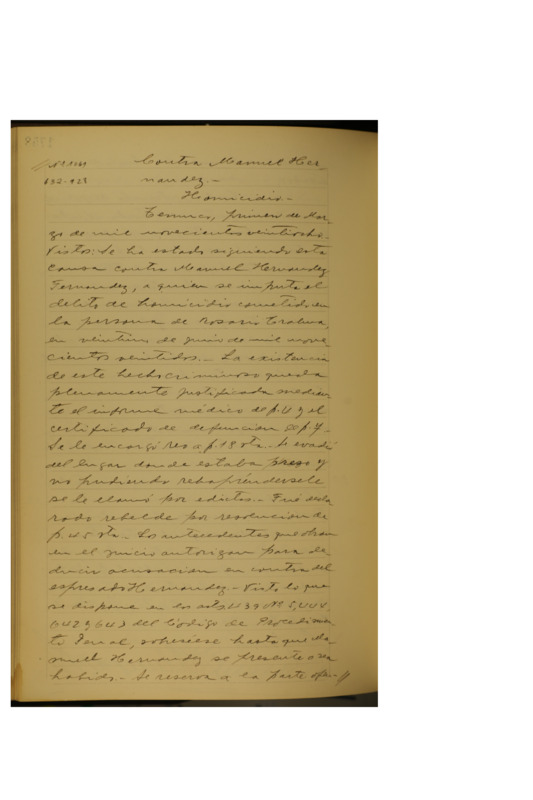 Contra Manuel Her
632-923 nandez.-
Homicidio.-
Temuco, primero de Mar-
zo de mil novecientos veintiocho.-
Vistos: Se ha estado siguiendo esta
causa contra Manuel Hernandez
Fernandez, a quien se imputa el
delito de homicidio cometido en
la persona de Rosario
en veintiuno de junio de mil nove
cientos veintidos.- La existencia
de este hecho criminoso queda
plenamente justificada median
te el informe médico de f. 4 y el
certificado de defuncion de f.
Se le encargó reo a f. 19 vta. Se evadió
del lugar donde estaba preso y
no pudiendo rehaprehendersele
se le llamó por edictos.- Fué decla
rado rebelde por resolucion de
f. 45 vta. Los antecedentes que obran
en el juicio autorizan para de
ducir acusacion en contra del
espresado Hernandez.- Visto lo que
se dispone en los arts. 439 Nº 5, 444,
del Código de Procedimien
to Penal, sobreséese hasta que Ma
nuel Hernandez se presente o sea
habido.- Se reserva a la parte ofen-//